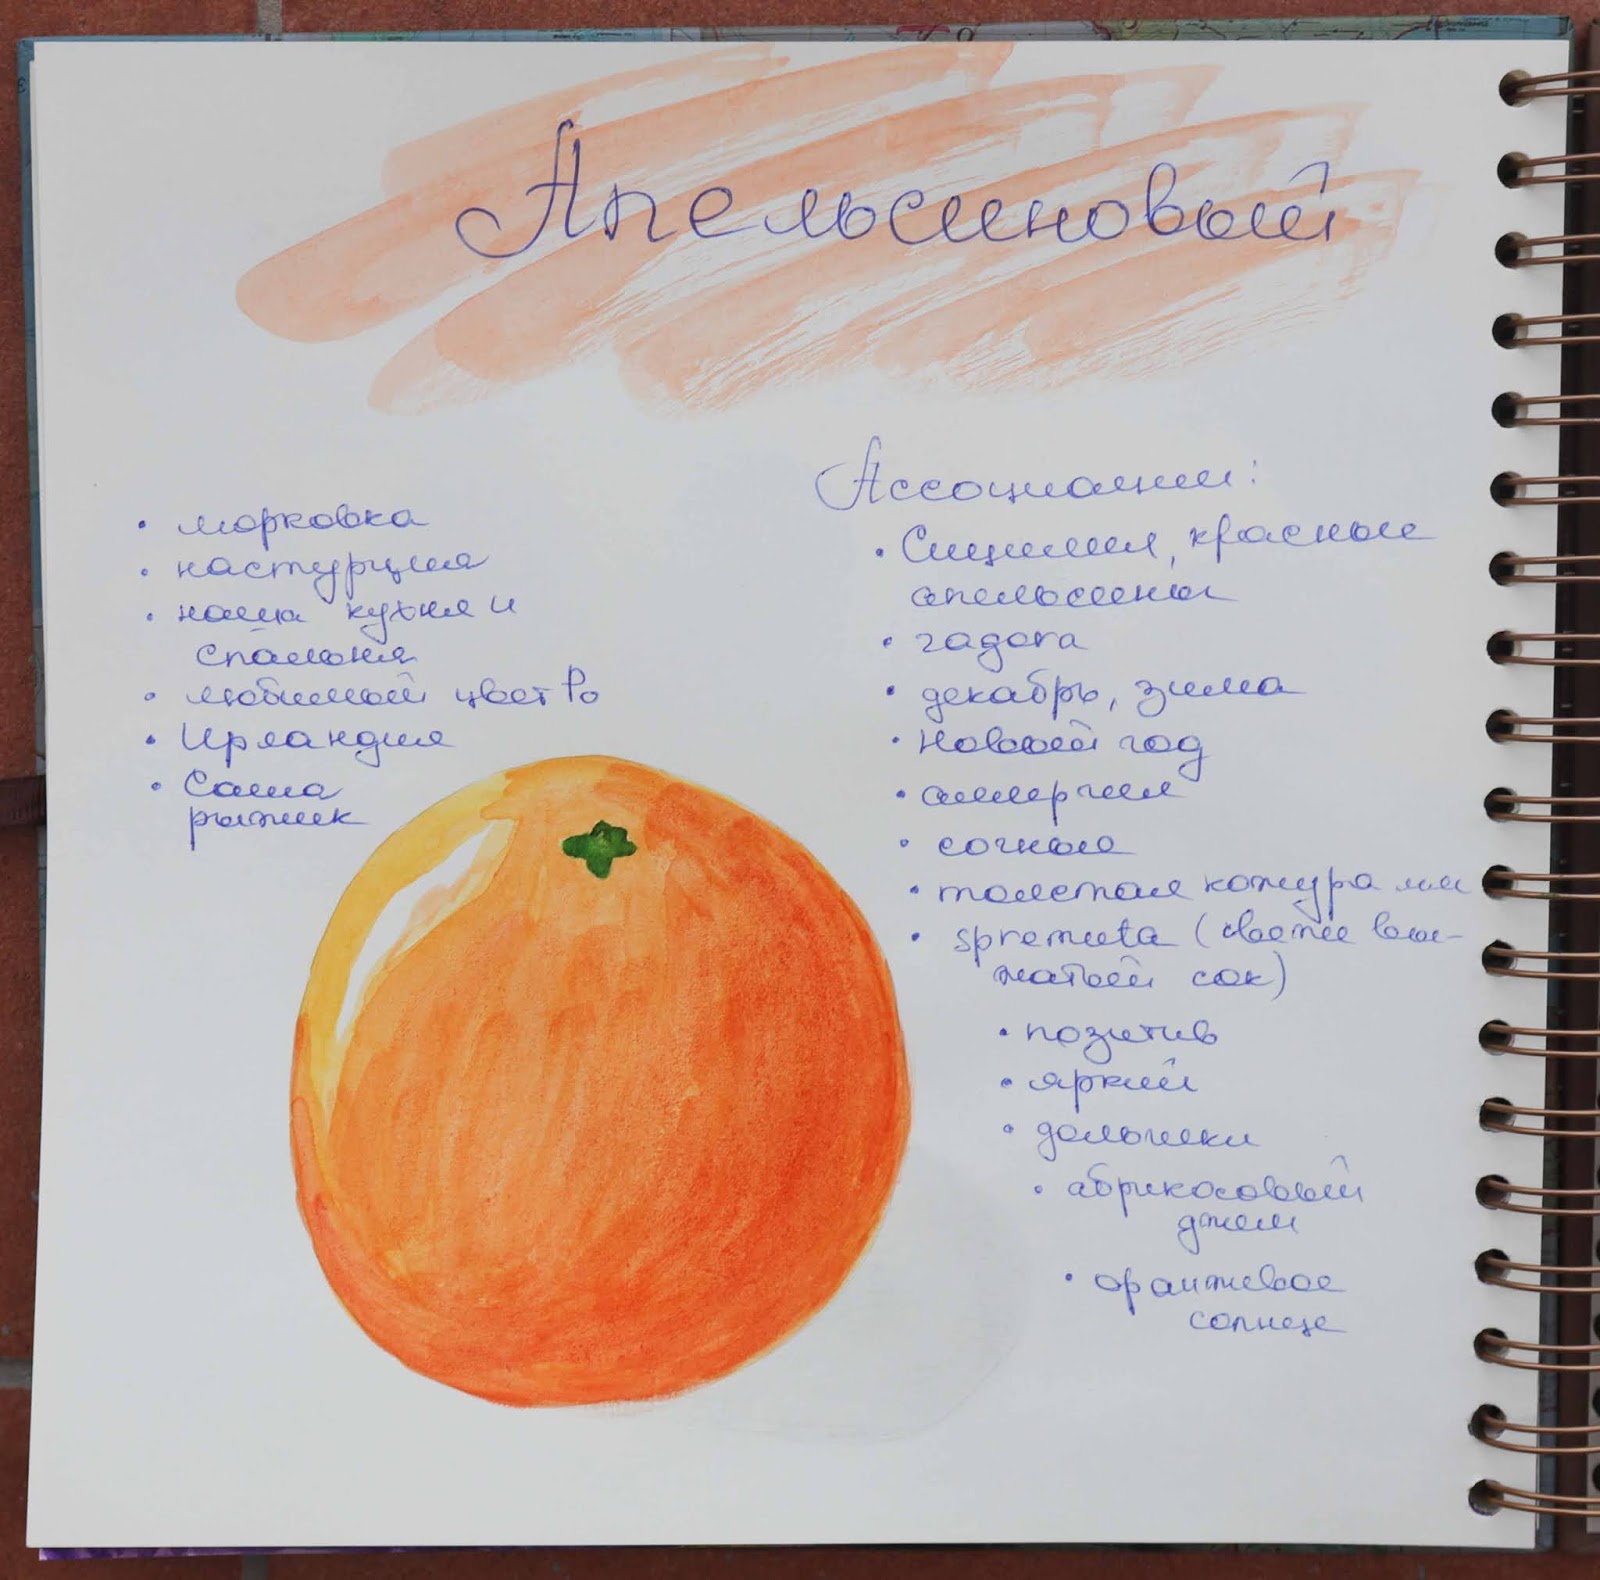 Апельсиновый
• морковка
• настурция
• наша кухня и
спальня
• любимый цвет Ро
• Ирландия
• Саша
рыжик
Ассоциации:
• Сицилия, красные
апельсины
• гадога
• декабрь, зима
• Новый год
• аллергия
• сочные
• толстая кожура
• spremuta (свеже вы-
жатый сок)
• позитив
• яркий
• дольки
• абрикосовый
джем
• оранжевое
солнце